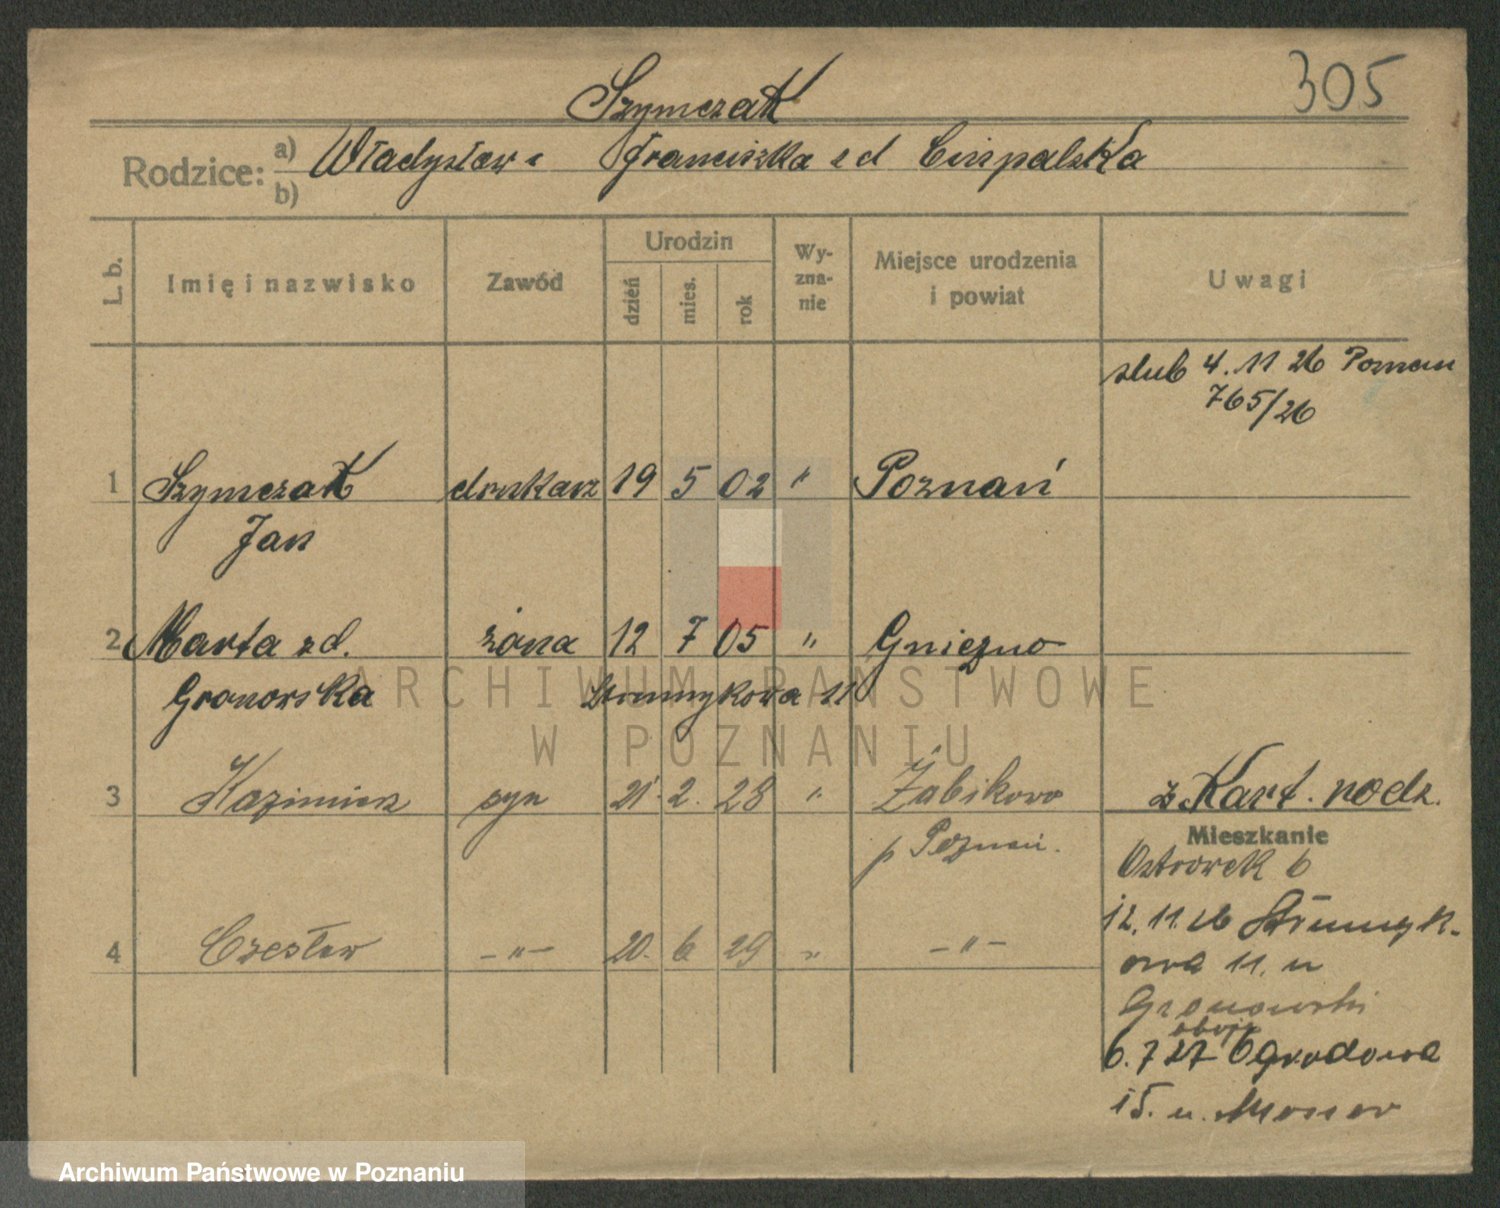 305
Szymczak
Rodzice: a) b) Władysław i Franciszka zd Cierpalska
L. b. Imię i nazwisko Zawód Urodzin dzień mies. rok Wy-zna-nie Miejsce urodzenia i powiat Uwagi
ślub 4. 11 26 Poznań
765/26
1 Szymczak drukarz 19 5 02 " Poznań
Jan
2 Marta zd. żona 12 7 05 " Gniezno
Gronowska Strumykowa 11
ARCHIWUM PAŃSTWOWE
W POZNANIU
3 Kazimierz syn 21. 2. 28 " Żabikowo z Kart. rodz.
p Poznań.
Mieszkanie
Ostrówek 6
12. 11. 26 Strumyk-
4 Czesław -"- 20. 6 29 " -"-
owa 11. u
Gronowski
oboje
6. 7 27 Ogrodowa
15. u.
Archiwum Państwowe w Poznaniu